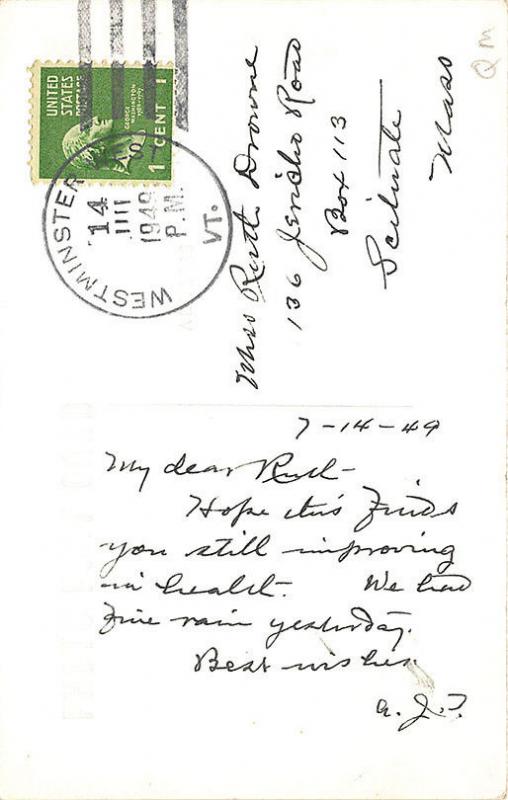 UNITED
STATES
POSTAGE
GEORGE
WASHINGTON
1789-1797
1 CENT 1
WESTMINSTER
14
JUL
1949
P.M.
VT.
Miss Ruth Drowne
136 Jericho Road
Box 113
Scituate
Mass
QM
7-14-49
My dear Ruth-
Hope this finds
you still improving
in health. We had
fine rain yesterday.
Best wishes.